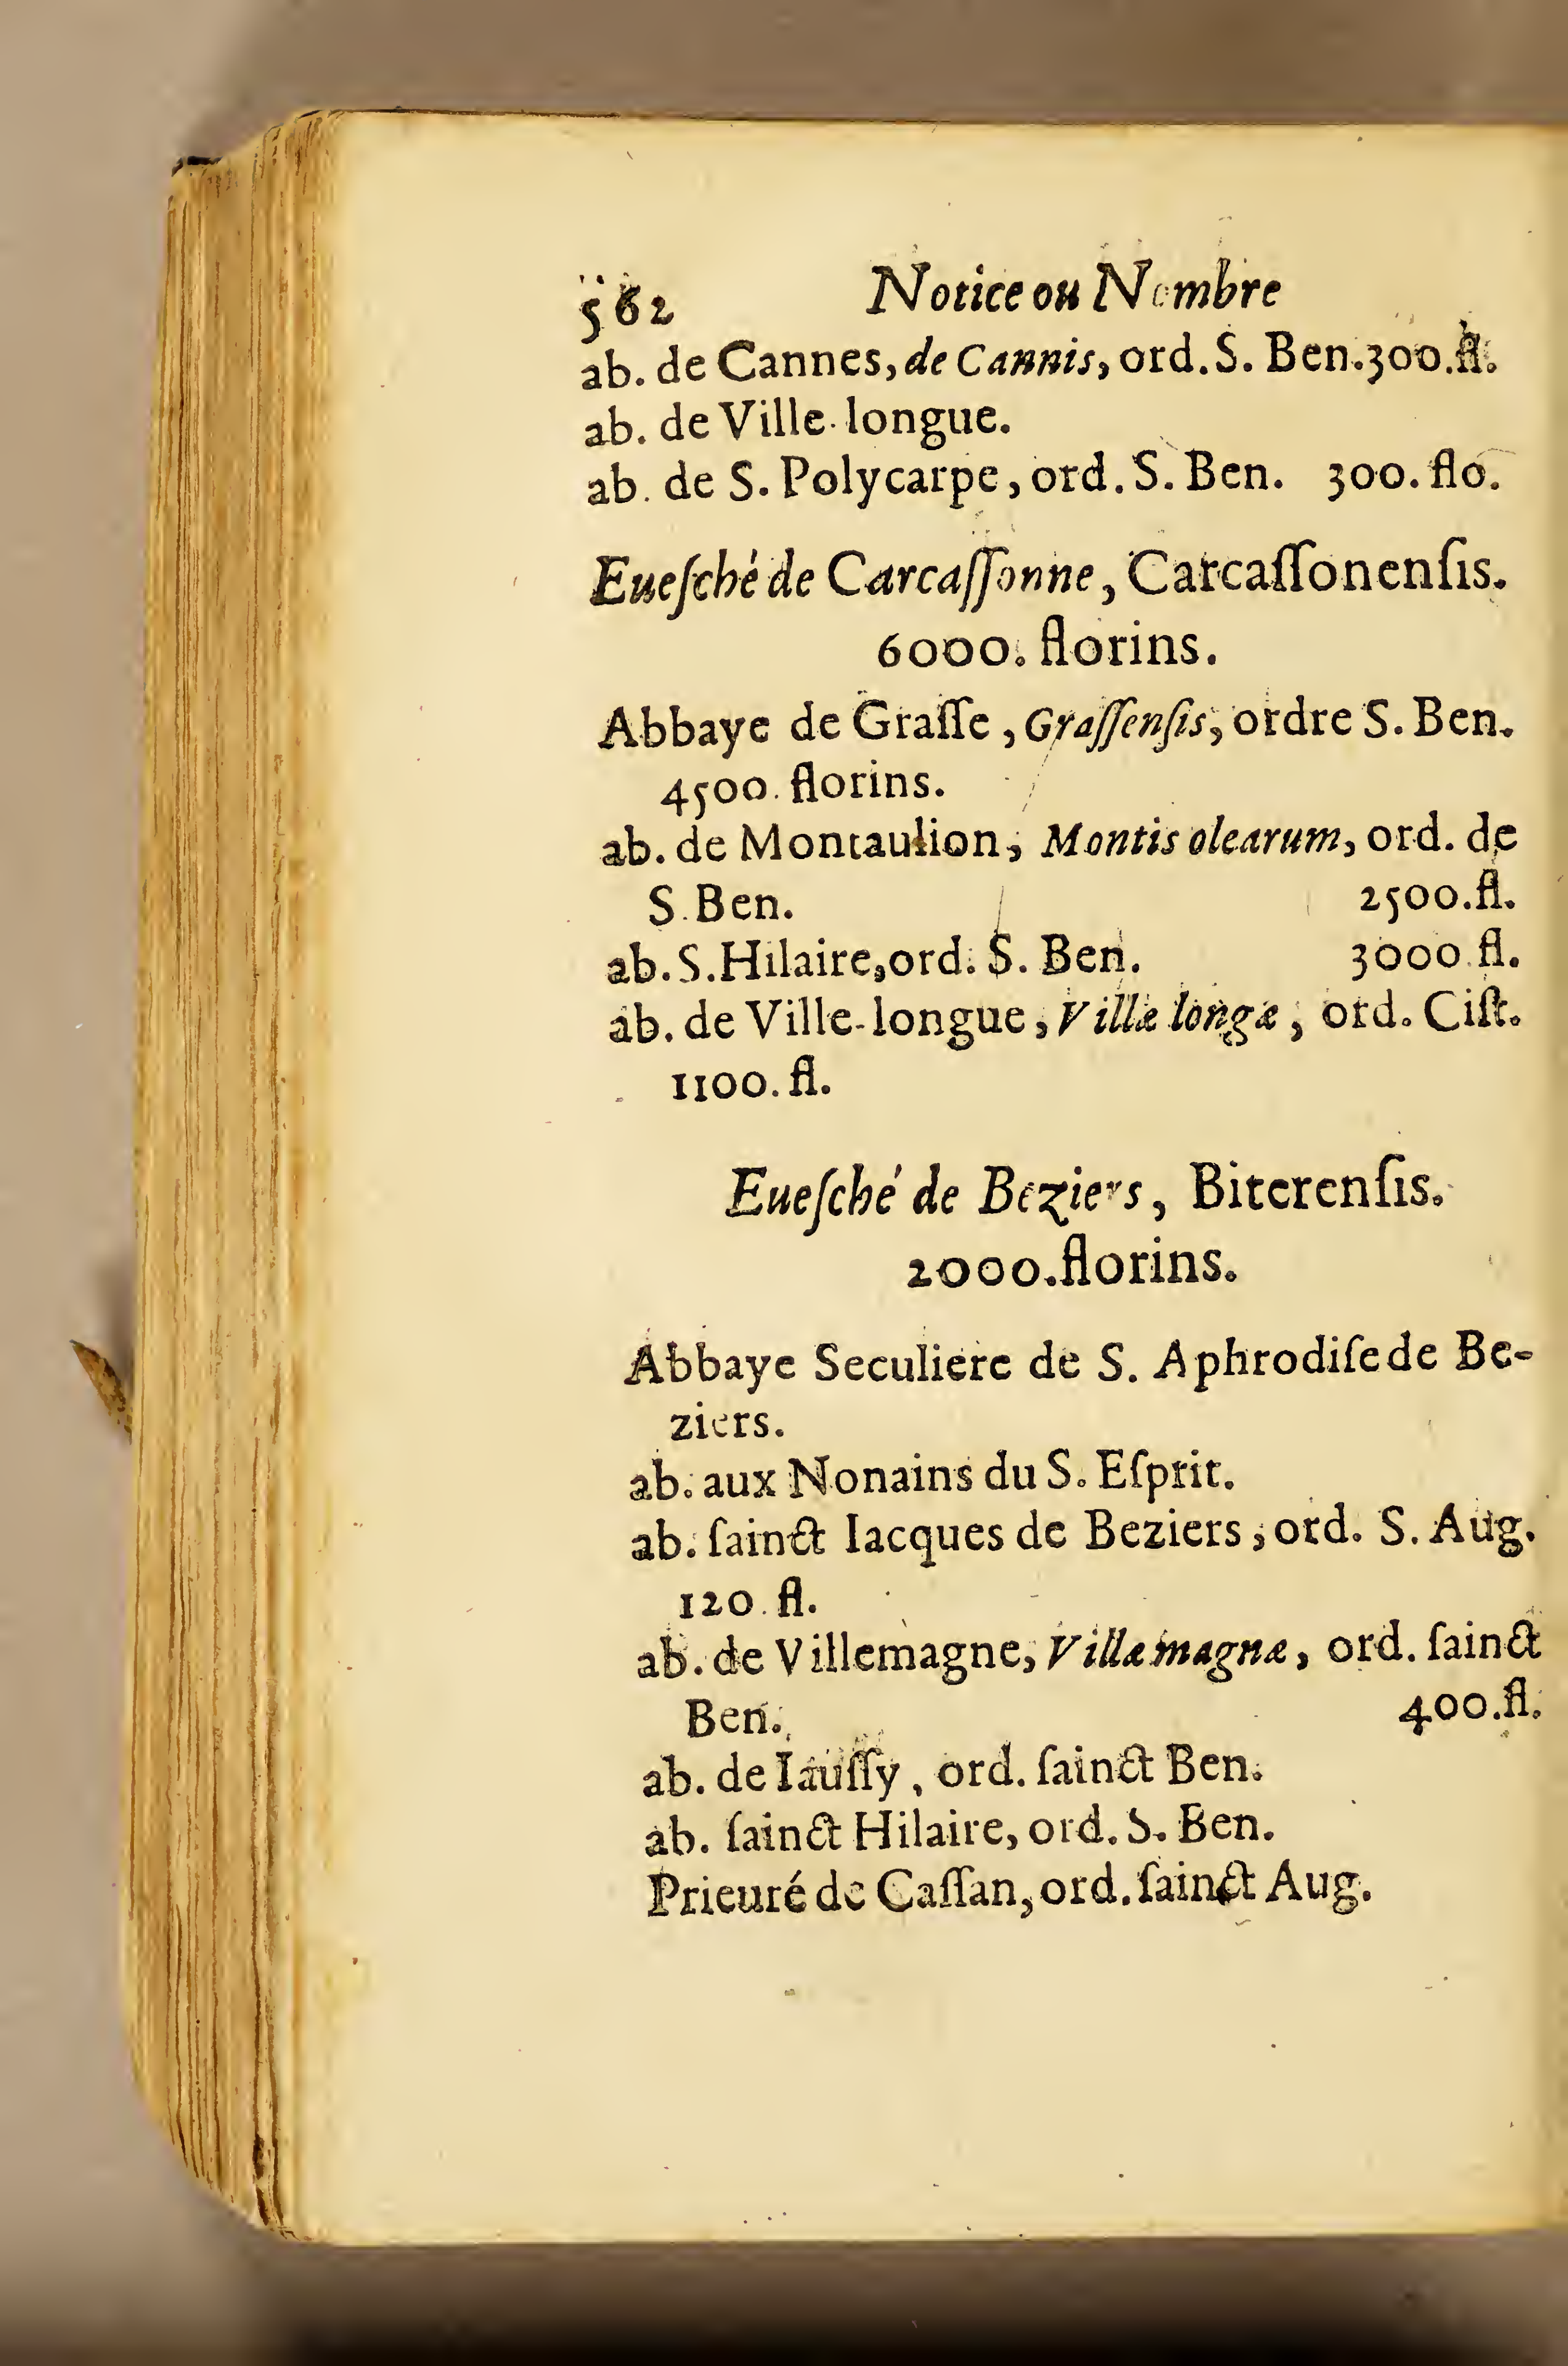 562 Notice ou Nombre
ab. de Cannes, de Cannis, ord. S. Ben. 300. fl.
ab. de Ville-longue.
ab. de S. Polycarpe, ord. S. Ben. 300. flo.
Eueſché de Carcaſſonne, Carcaſſonenſis.
6000. florins.
Abbaye de Graſſe, Graſſenſis, ordre S. Ben.
4500. florins.
ab. de Montaulion, Montis olearum, ord. de
S. Ben. 2500. fl.
ab. S. Hilaire, ord. S. Ben. 3000. fl.
ab. de Ville-longue, Villæ longæ, ord. Ciſt.
1100. fl.
Eueſché de Beziers, Biterenſis.
2000. florins.
Abbaye Seculiere de S. Aphrodiſe de Be-
ziers.
ab. aux Nonains du S. Eſprit.
ab. ſainct Iacques de Beziers, ord. S. Aug.
120. fl.
ab. de Villemagne, Villæ magnæ, ord. ſainct
Ben. 400. fl.
ab. de Iauſſy, ord. ſainct Ben.
ab. ſainct Hilaire, ord. S. Ben.
Prieuré de Caſſan, ord. ſainct Aug.